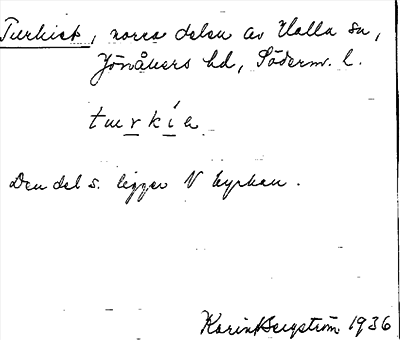 Turkiet, norra delen av Halla sn,
Jönåkers hd, Söderm. l.
turkía
Den del s. ligger N kyrkan.
Karin Bergström 1936